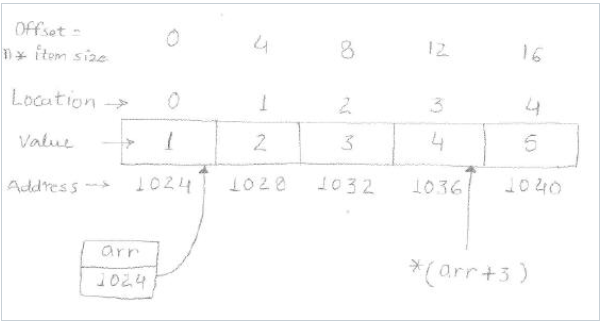 Offset =
n* item size 0 4 8 12 16
Location → 0 1 2 3 4
Value → 1 2 3 4 5
Address → 1024 1028 1032 1036 1040
arr
1024
*(arr+3)